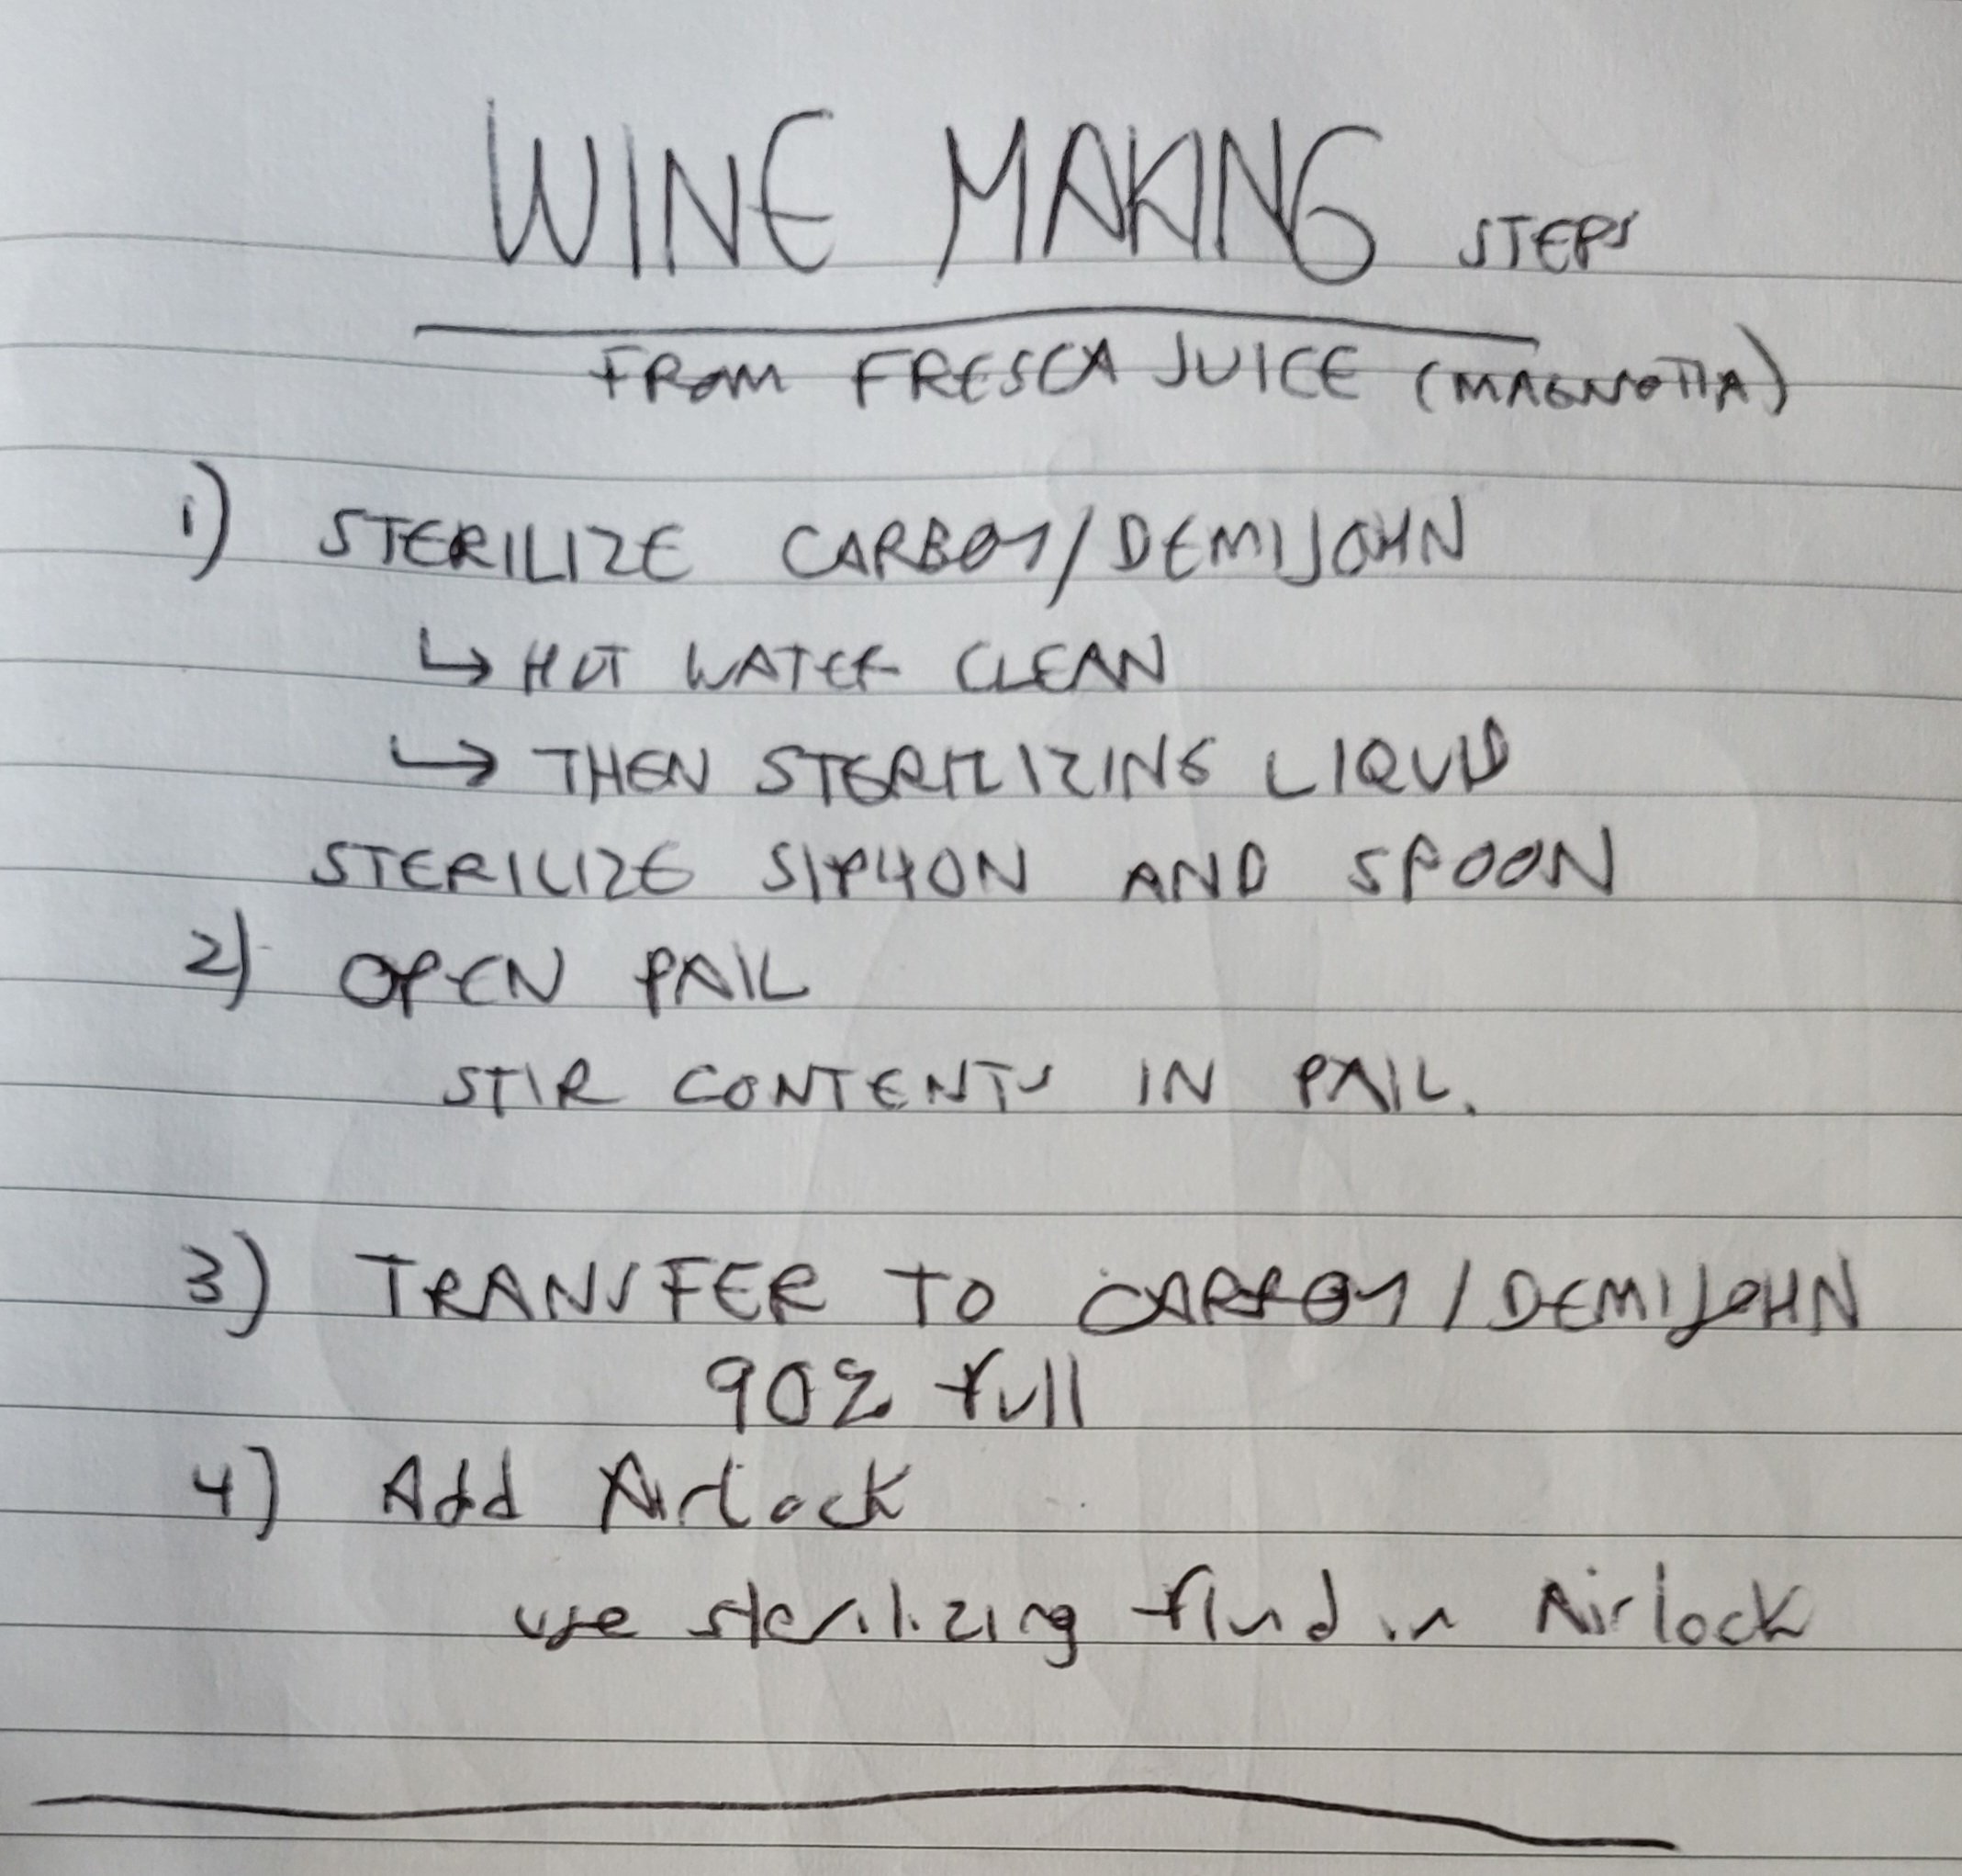 WINE MAKING STEPS
FROM FRESCA JUICE (MAGNOTTA)
1) STERILIZE CARBOY/DEMIJOHN
↳ HOT WATER CLEAN
↳ THEN STERILIZING LIQUID
STERILIZE SIPHON AND SPOON
2) OPEN PAIL
STIR CONTENTS IN PAIL.
3) TRANSFER TO CARBOY/DEMIJOHN
90% full
4) Add Airlock
use sterilizing fluid in Airlock